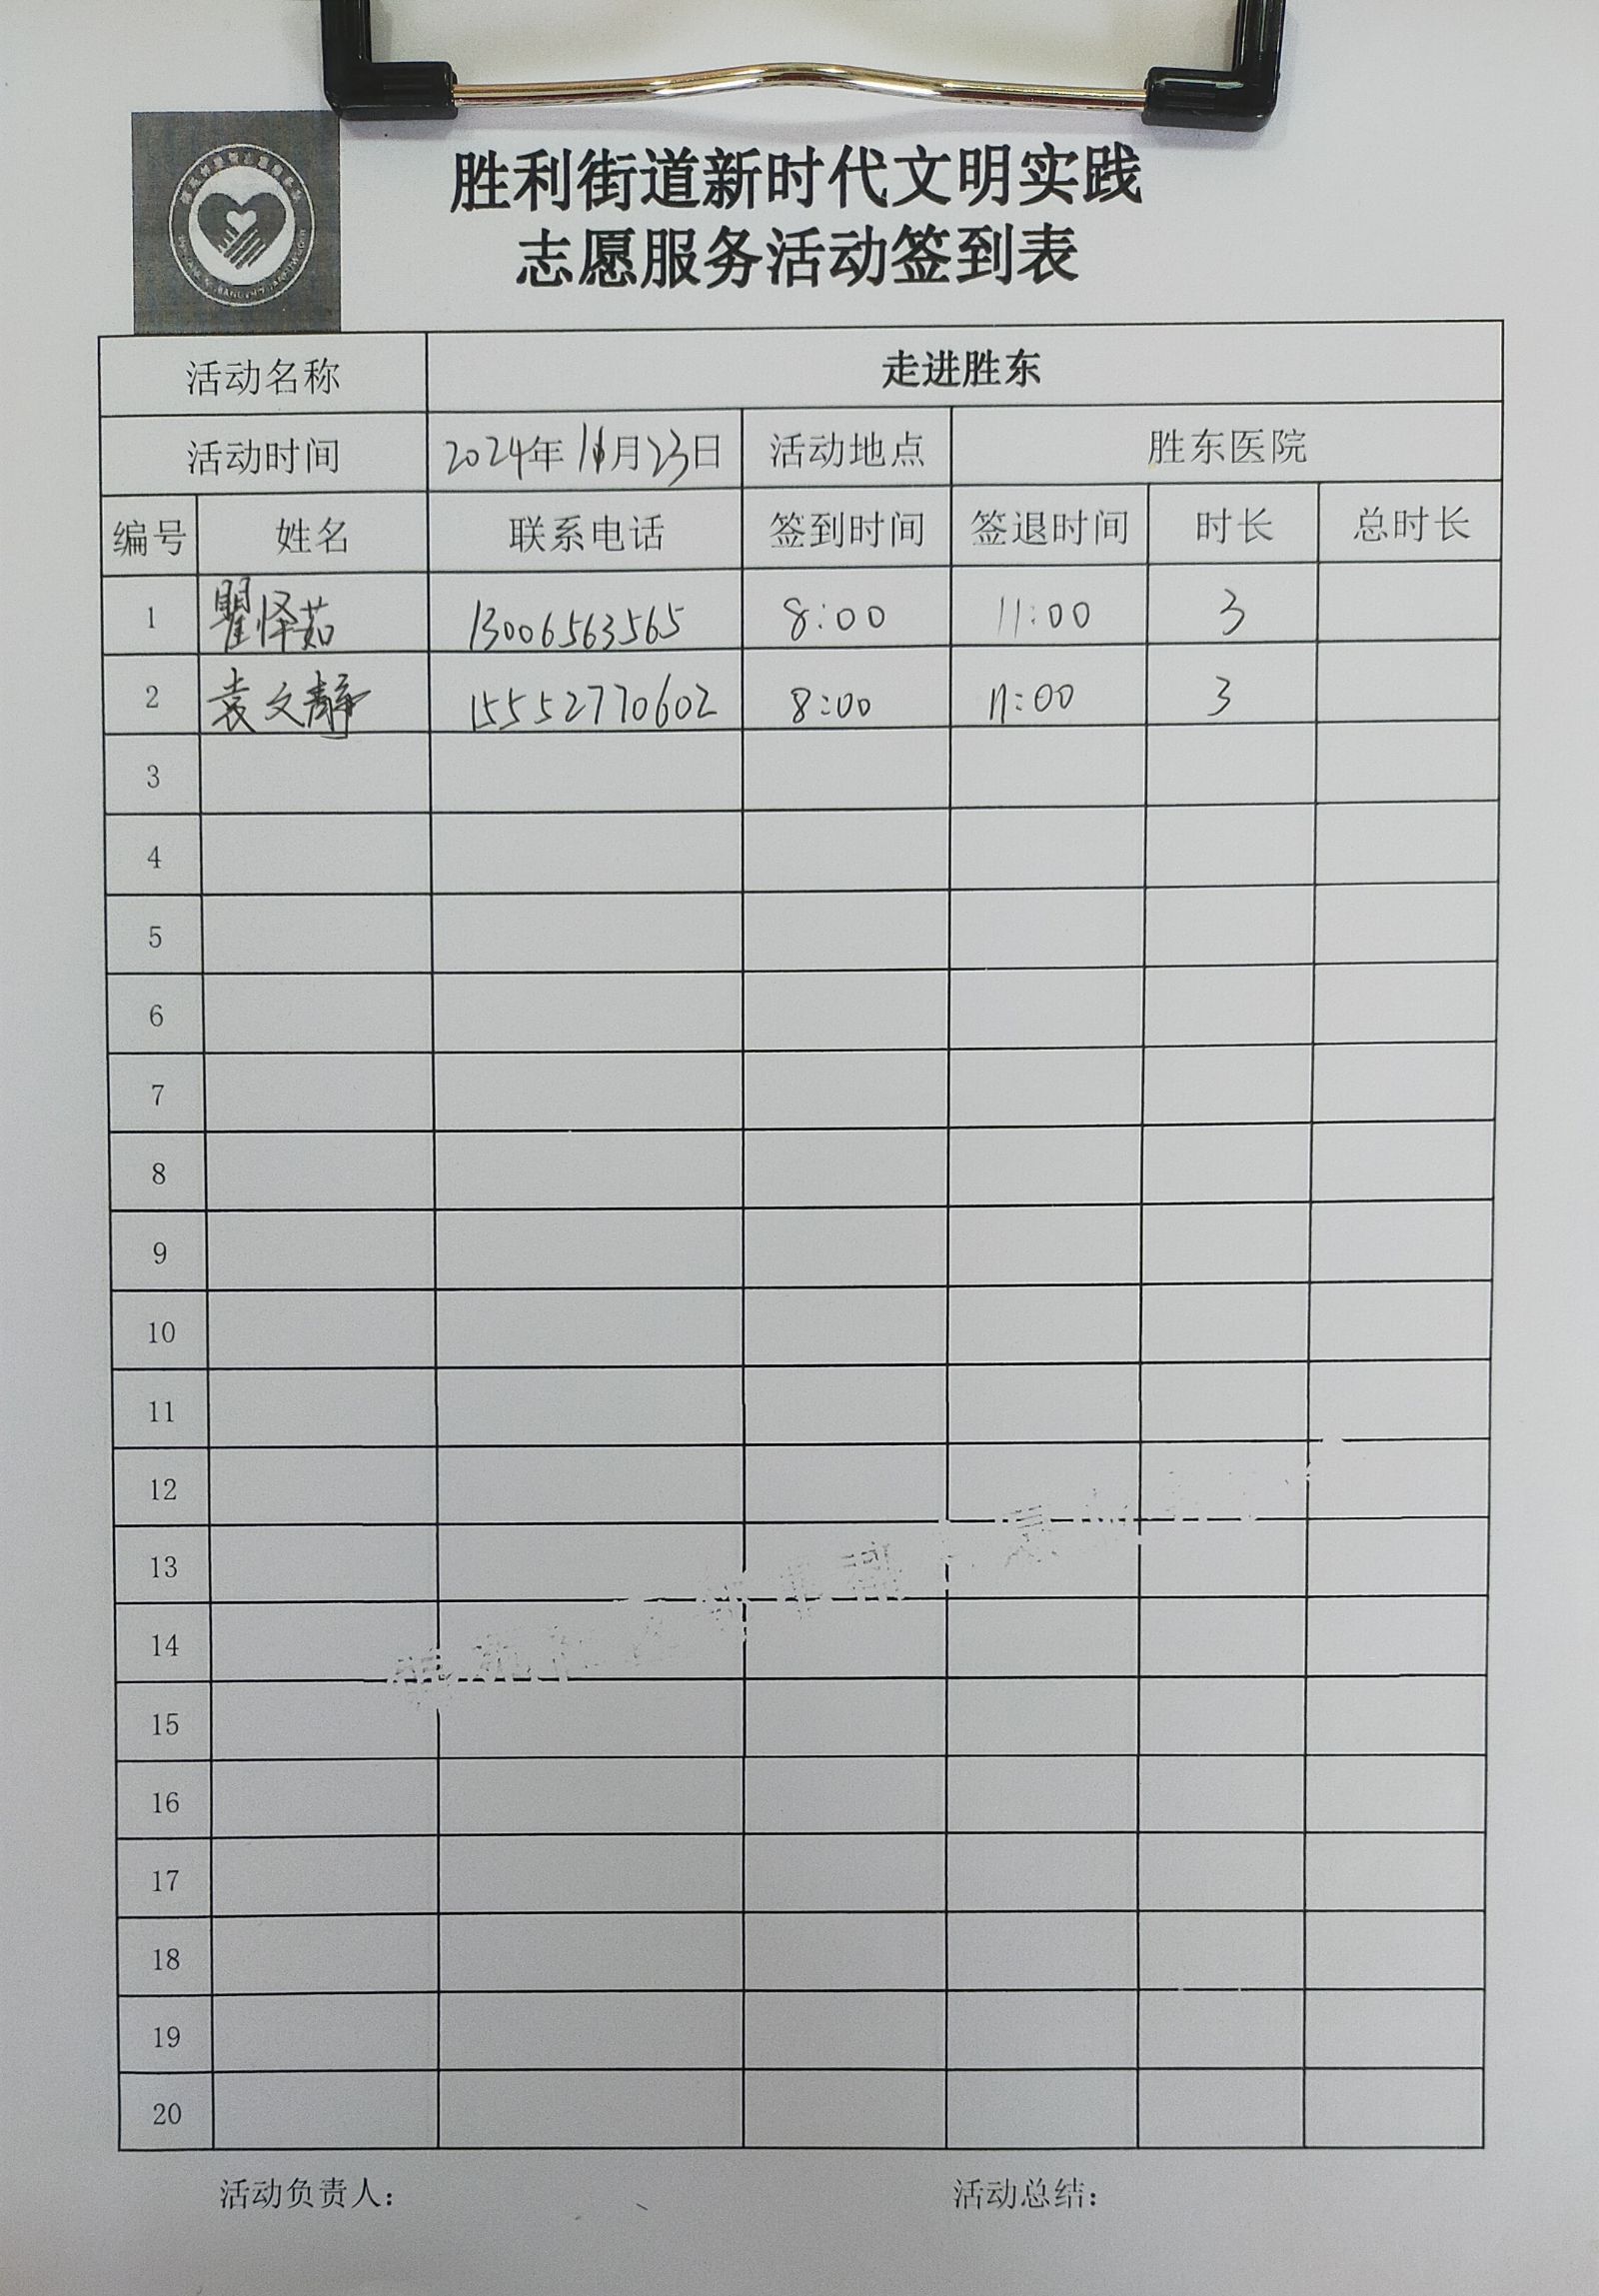 胜利街道新时代文明实践
志愿服务活动签到表
活动名称 走进胜东
活动时间 2024年11月23日 活动地点 胜东医院
编号 姓名 联系电话 签到时间 签退时间 时长 总时长
1 瞿怿茹 13006563565 8:00 11:00 3
2 袁文静 15552770602 8:00 11:00 3
3
4
5
6
7
8
9
10
11
12
13
14
15
16
17
18
19
20
活动负责人： 活动总结：